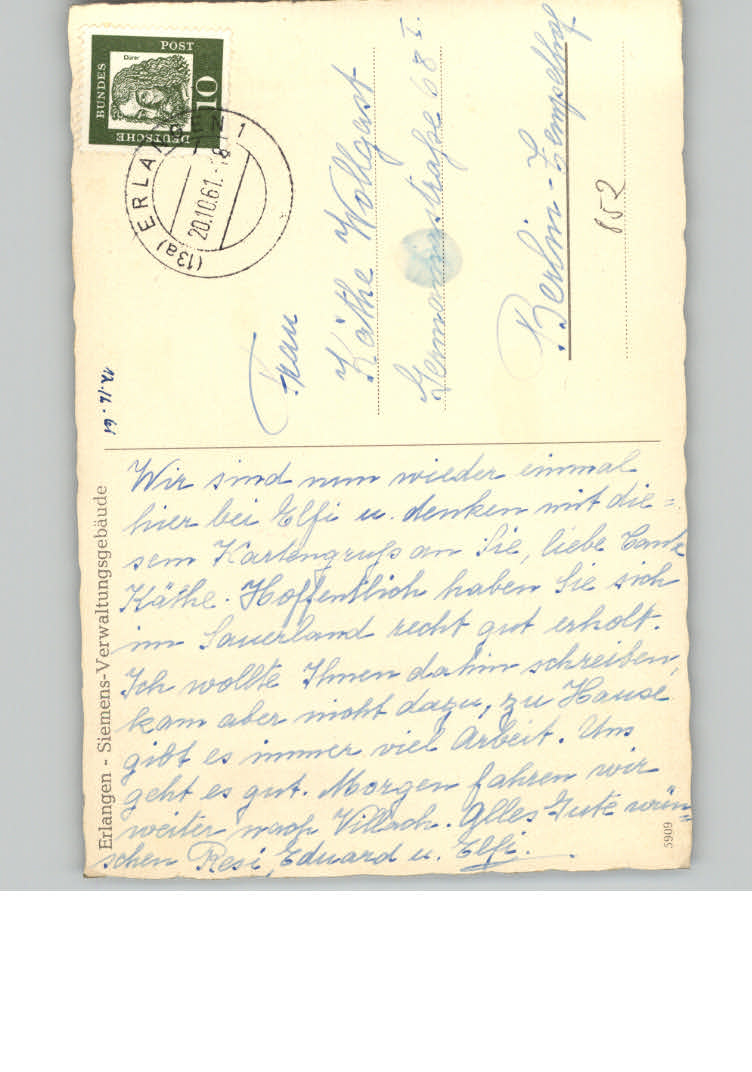 Deutsche
Bundes
Post
Dürer
10
(13a) ERLANGEN 1
20.10.61.-18
Frau
Käthe Wollgast
Germaniastraße 68 I.
Berlin-Tempelhof
152
Erlangen - Siemens-Verwaltungsgebäude
Wir sind nun wieder einmal
hier bei Elfi u. denken mit die=
sem Kartengruß an Sie, liebe Tante
Käthe. Hoffentlich haben Sie sich
im Sauerland recht gut erholt.
Ich wollte Ihnen dahin schreiben,
kam aber nicht dazu, zu Hause
gibt es immer viel Arbeit. Uns
geht es gut. Morgen fahren wir
weiter nach Villach. Alles Gute wün=
schen Resi, Eduard u. Elfi.
5909